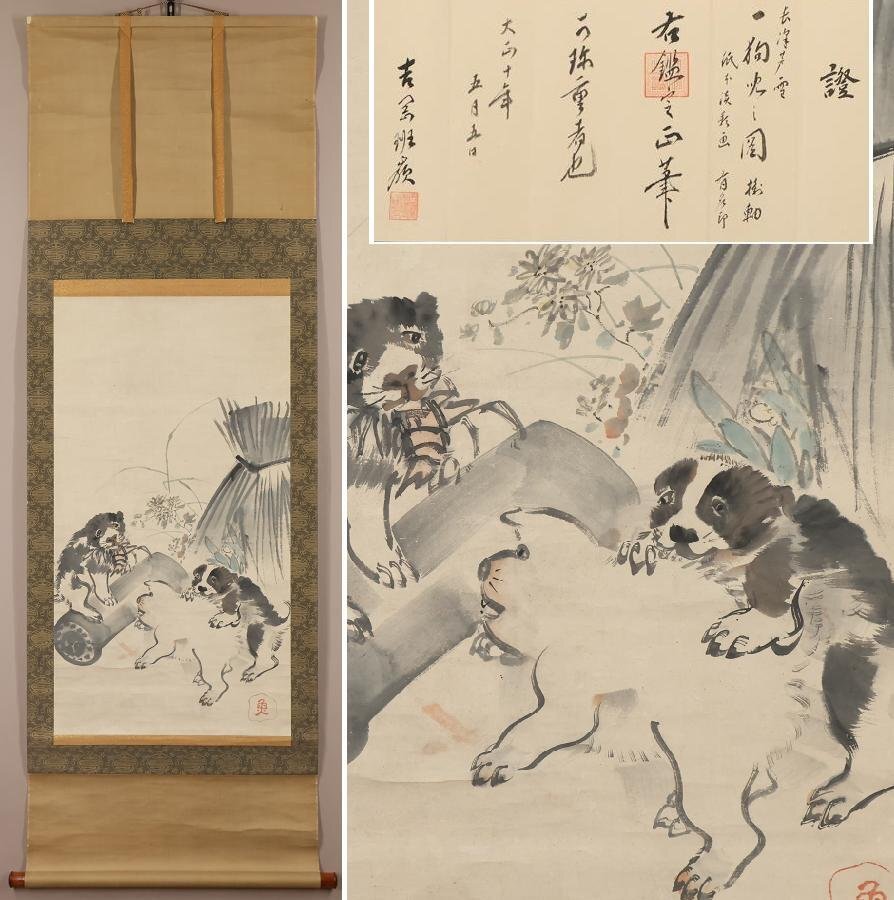 證
長澤芦雪
一狗児之図 樹軸
紙本淡彩画 有名印
右鑑定正筆
可珍重者也
大正十年
五月五日
魚